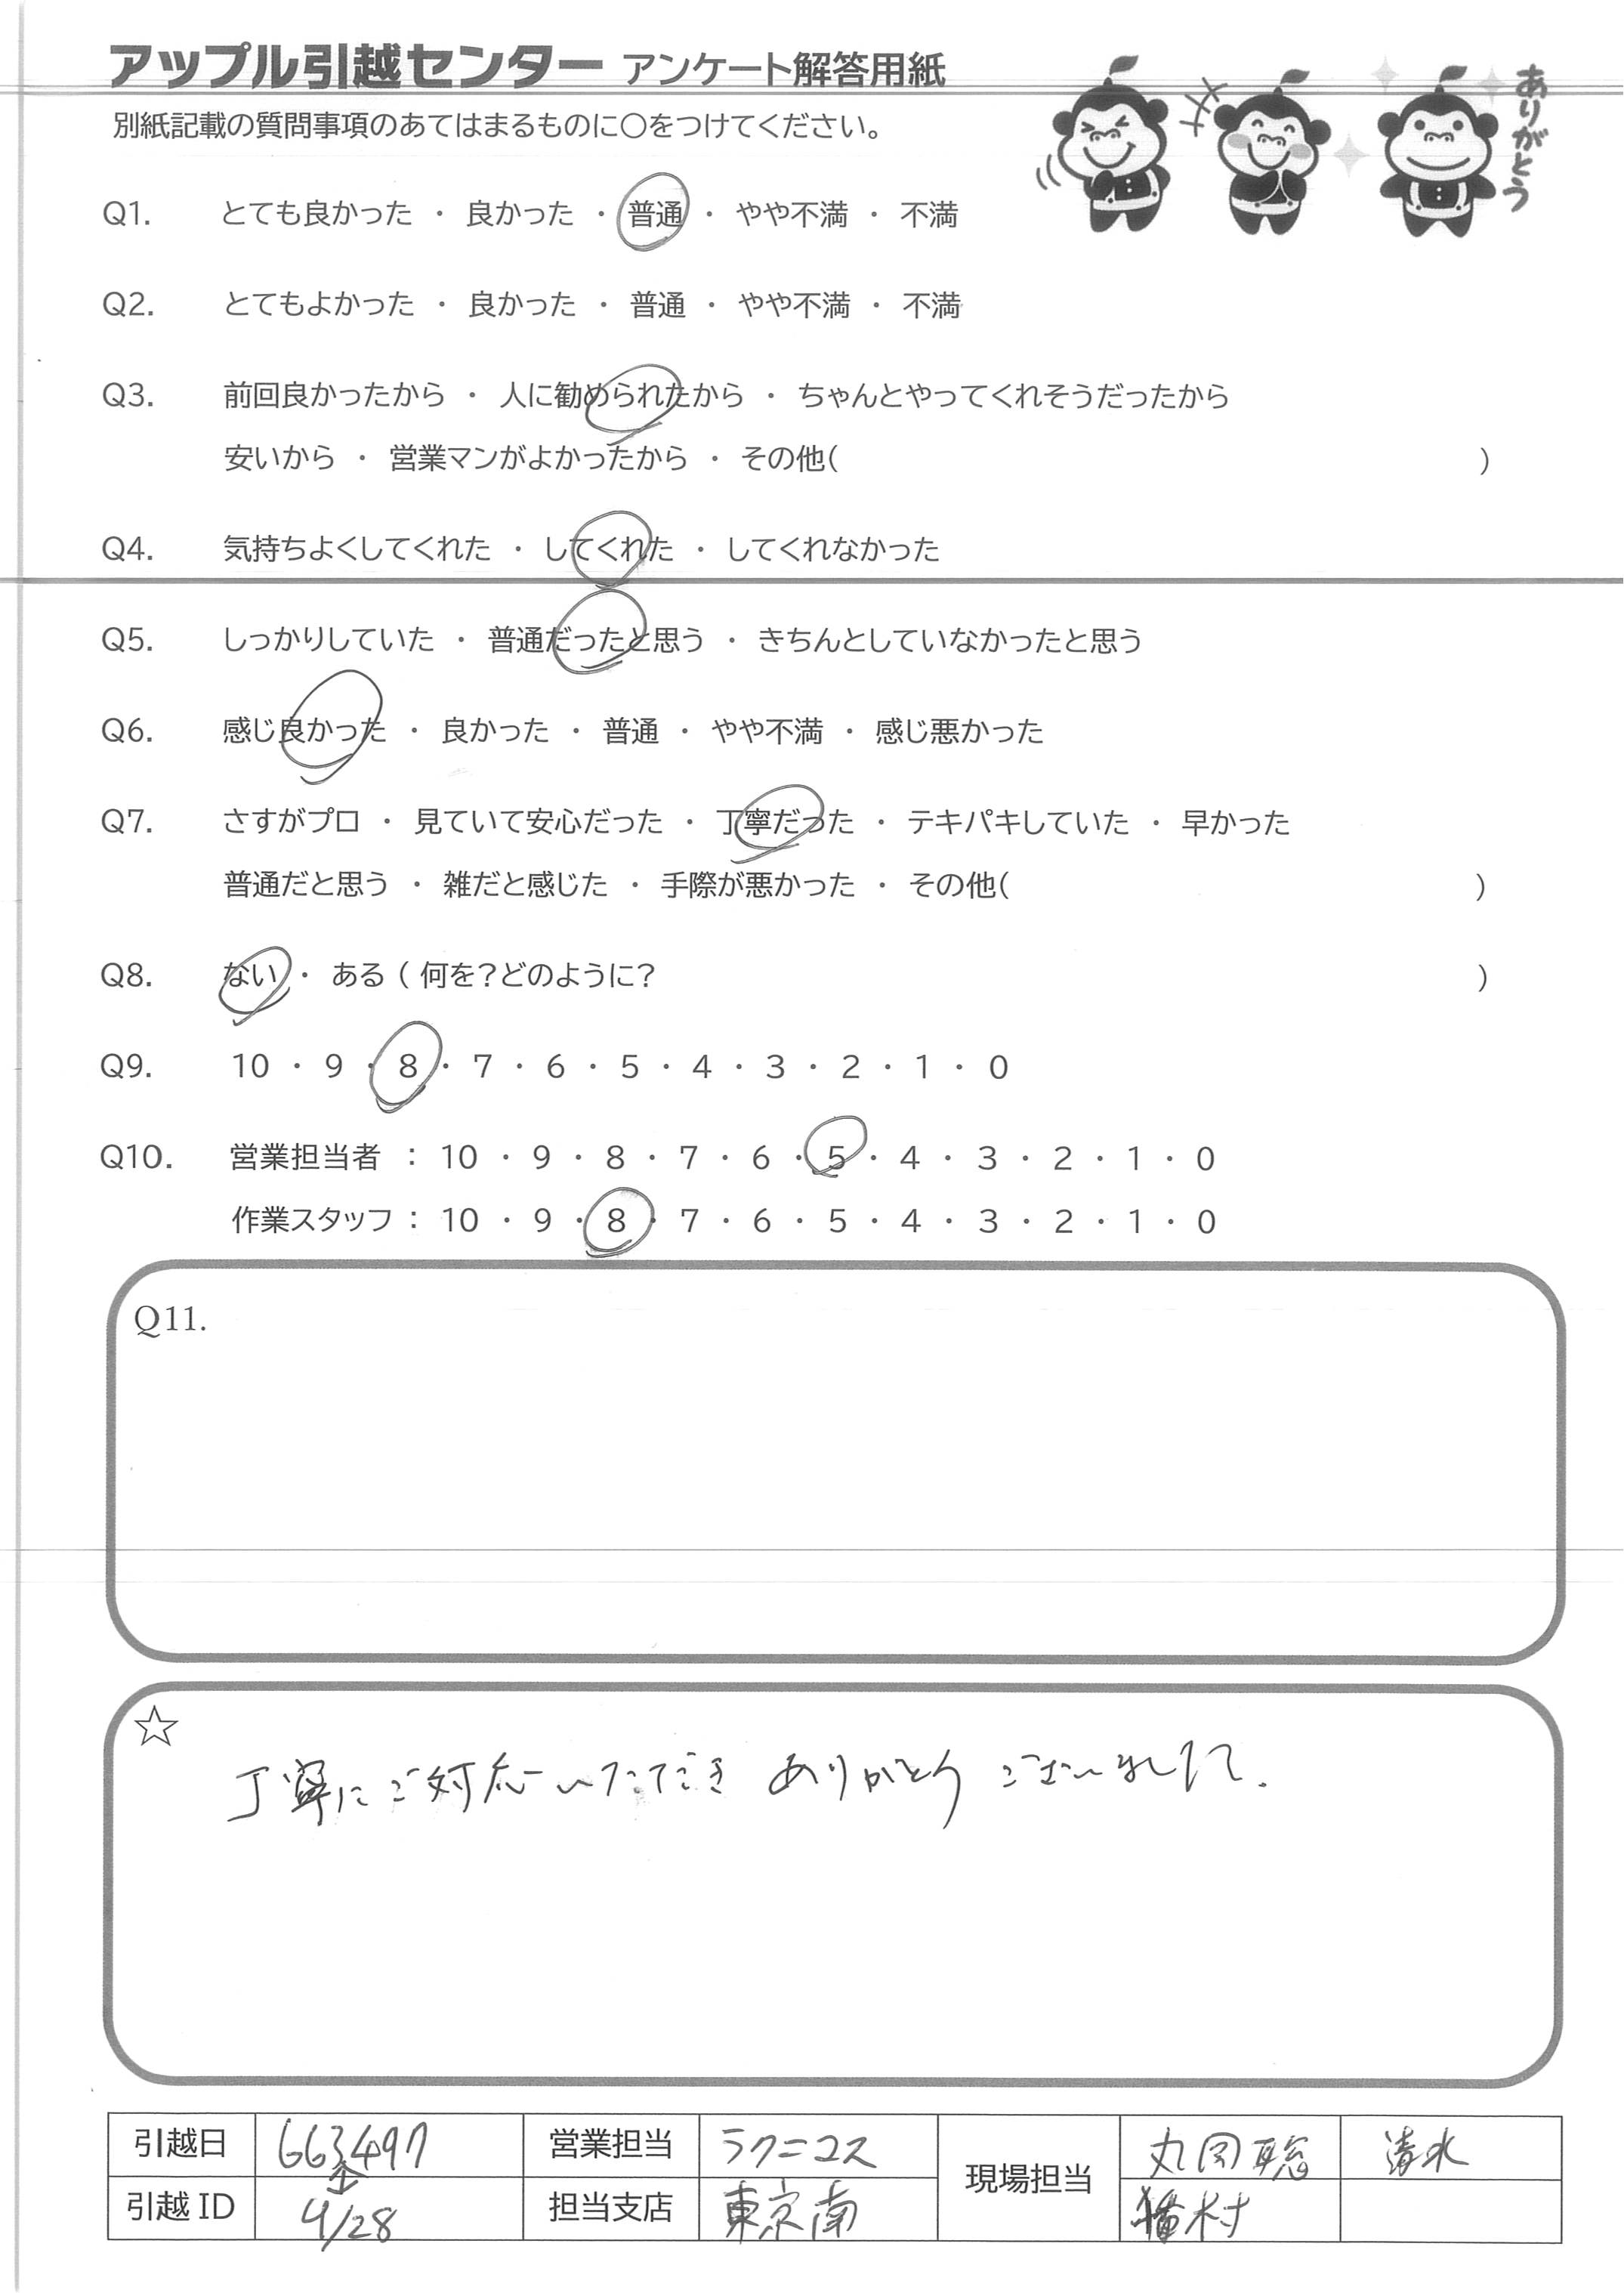 アップル引越センター アンケート解答用紙
ありがとう
別紙記載の質問事項のあてはまるものに○をつけてください。
Q1. とても良かった ・ 良かった ・ 普通 ・ やや不満 ・ 不満
Q2. とてもよかった ・ 良かった ・ 普通 ・ やや不満 ・ 不満
Q3. 前回良かったから ・ 人に勧められたから ・ ちゃんとやってくれそうだったから
安いから ・ 営業マンがよかったから ・ その他( )
Q4. 気持ちよくしてくれた ・ してくれた ・ してくれなかった
Q5. しっかりしていた ・ 普通だったと思う ・ きちんとしていなかったと思う
Q6. 感じ良かった ・ 良かった ・ 普通 ・ やや不満 ・ 感じ悪かった
Q7. さすがプロ ・ 見ていて安心だった ・ 丁寧だった ・ テキパキしていた ・ 早かった
普通だと思う ・ 雑だと感じた ・ 手際が悪かった ・ その他( )
Q8. ない ・ ある ( 何を?どのように? )
Q9. 10 ・ 9 ・ 8 ・ 7 ・ 6 ・ 5 ・ 4 ・ 3 ・ 2 ・ 1 ・ 0
Q10. 営業担当者 : 10 ・ 9 ・ 8 ・ 7 ・ 6 ・ 5 ・ 4 ・ 3 ・ 2 ・ 1 ・ 0
作業スタッフ : 10 ・ 9 ・ 8 ・ 7 ・ 6 ・ 5 ・ 4 ・ 3 ・ 2 ・ 1 ・ 0
Q11.
☆
丁寧にご対応いただき ありがとう ございました.
引越日 663497 営業担当 ラクニコス 現場担当 丸岡聡 清水
引越ID 4/28 担当支店 東京南 村